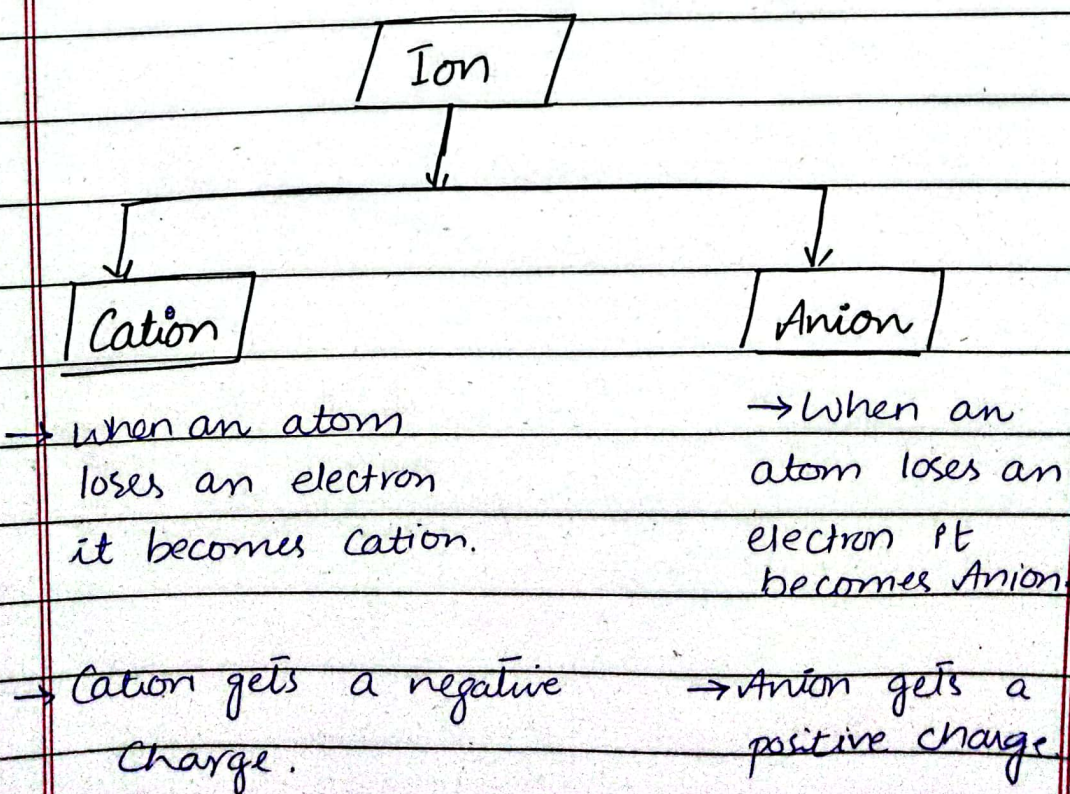 Ion
Cation
Anion
→ When an atom
loses an electron
it becomes Cation.
→ Cation gets a negative
Charge.
→ When an
atom loses an
electron it
becomes Anion.
→ Anion gets a
positive charge.